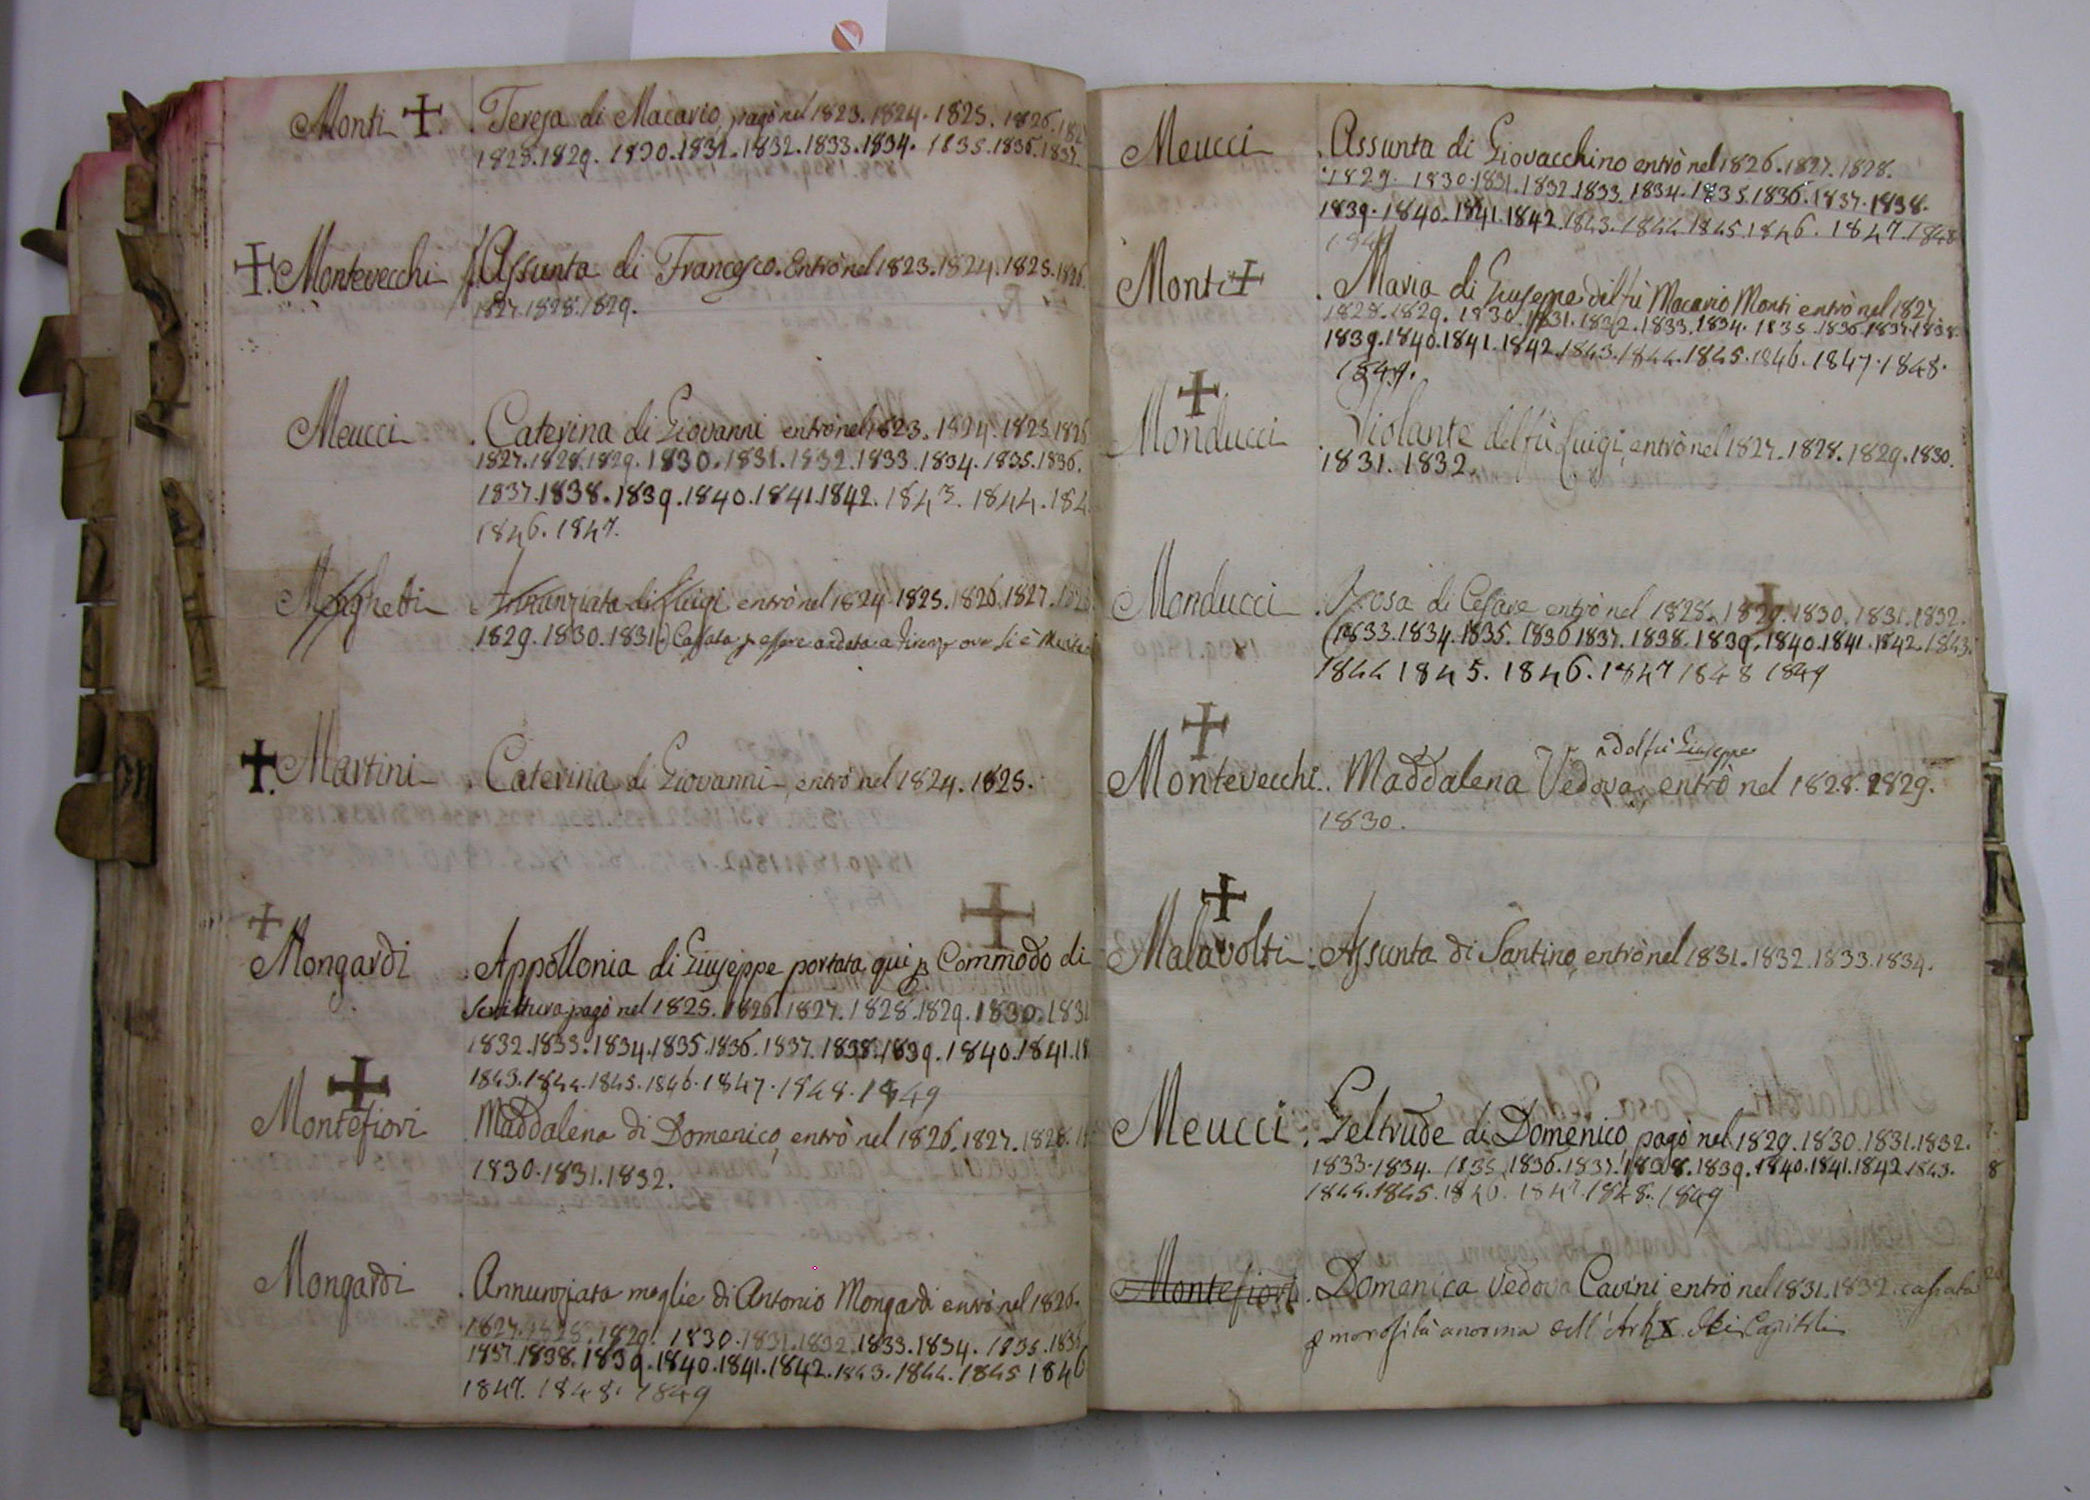 Monti . Teresa di Macario, pagò nel 1823. 1824. 1825. 1826.
1828. 1829. 1830. 1831. 1832. 1833. 1834. 1835. 1836. 1837
Montevecchi Assunta di Francesco. Entrò nel 1823. 1824. 1825. 1826.
1827. 1828. 1829.
Meucci . Caterina di Giovanni entrò nel 1823. 1824. 1825. 1826
1827. 1828. 1829. 1830. 1831. 1832. 1833. 1834. 1835. 1836.
1837. 1838. 1839. 1840. 1841. 1842. 1843. 1844. 184
1846. 1847.
Menghetti Annunziata di Luigi entrò nel 1824. 1825. 1826. 1827.
1829. 1830. 1831. Cassata p essere andata a ove si è
Martini . Caterina di Giovanni, entrò nel 1824. 1825.
Mongardi . Appollonia di Giuseppe portata qui p Commodo di
Scrittura pagò nel 1825. 1826. 1827. 1828. 1829. 1830. 1831
1832. 1833. 1834. 1835. 1836. 1837. 1838. 1839. 1840. 1841. 18
1843. 1844. 1845. 1846. 1847. 1848. 1849
Montefiori . Maddalena di Domenico, entrò nel 1826. 1827. 1828.
1830. 1831. 1832.
Mongardi . Annunziata moglie di Antonio Mongardi entrò nel 1826.
1827. 1828. 1829. 1830. 1831. 1832. 1833. 1834. 1835. 1836
1837. 1838. 1839. 1840. 1841. 1842. 1843. 1844. 1845 1846
1847. 1848. 1849
Meucci . Assunta di Giovacchino entrò nel 1826. 1827. 1828.
1829. 1830. 1831. 1832. 1833. 1834. 1835. 1836. 1837. 1838.
1839. 1840. 1841. 1842. 1843. 1844. 1845. 1846. 1847. 1848
Monti . Maria di Giuseppe del fù Macario Monti entrò nel 1827.
1828. 1829. 1830. 1831. 1832. 1833. 1834. 1835. 1836. 1837. 1838.
1839. 1840. 1841. 1842. 1843. 1844. 1845. 1846. 1847. 1848.
1849.
Monducci . Violante del fù Luigi, entrò nel 1827. 1828. 1829. 1830.
1831. 1832.
Monducci . Rosa di Cesare entrò nel 1828. 1829. 1830. 1831. 1832.
1833. 1834. 1835. 1836 1837. 1838. 1839. 1840. 1841. 1842. 1843.
1844 1845. 1846. 1847 1848 1849
del fù Giuseppe
Montevecchi . Maddalena Vedova entrò nel 1828. 1829.
1830.
Malavolti . Assunta di Santino, entrò nel 1831. 1832. 1833. 1834.
Meucci . Geltrude di Domenico pagò nel 1829. 1830. 1831. 1832.
1833. 1834. 1835. 1836. 1837. 1838. 1839. 1840. 1841. 1842. 1843.
1844. 1845. 1846. 1847. 1848. 1849
Montefiori . Domenica Vedova Cavini entrò nel 1831. 1832. cassata
p morosità a norma dell' Capitoli